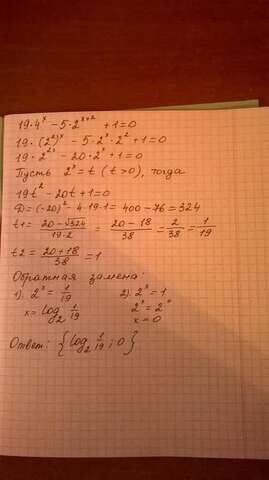 19·4^x − 5·2^(x+2) + 1 = 0
19·(2^2)^x − 5·2^x·2^2 + 1 = 0
19·2^(2x) − 20·2^x + 1 = 0
Пусть 2^x = t (t > 0), тогда
19t^2 − 20t + 1 = 0
D = (−20)^2 − 4·19·1 = 400 − 76 = 324
t1 = (20 − √324)/(19·2) = (20 − 18)/38 = 2/38 = 1/19
t2 = (20 + 18)/38 = 1
Обратная замена:
1). 2^x = 1/19 2). 2^x = 1
x = log_2 1/19 2^x = 2^0
x = 0
Ответ: {log_2 1/19 ; 0}